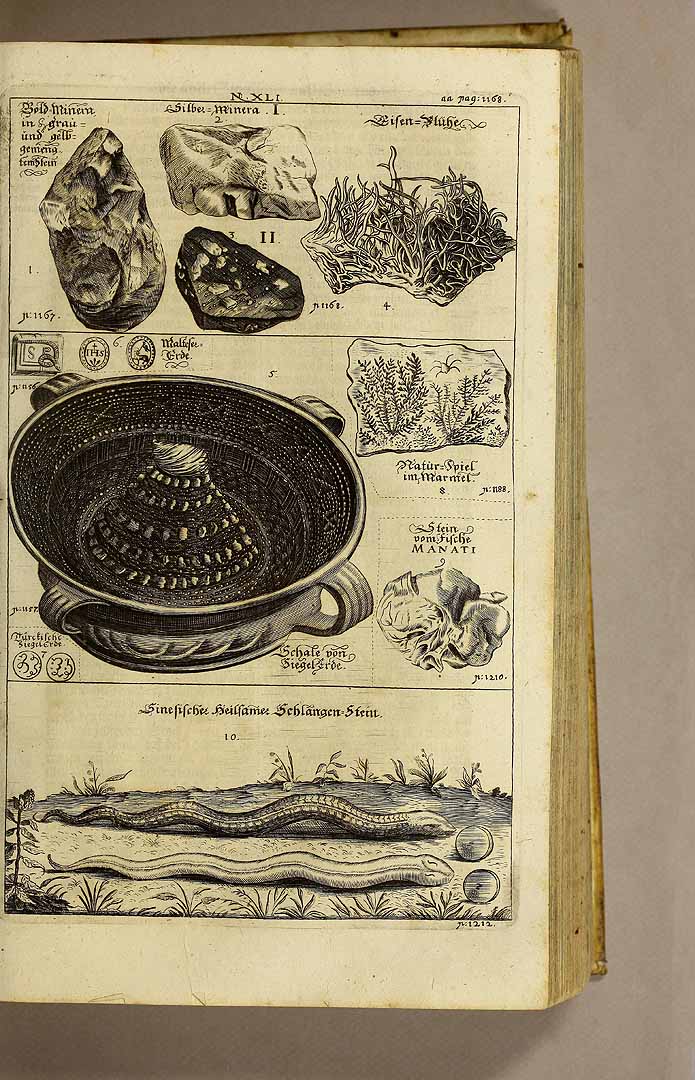 No. XLI.
aa pag: 1168.
Gold-Minera
in grau=
und gelb=
gemeng=
tem Stein
1.
p: 1167.
Silber-Minera. I.
2
3
II.
Eisen=Blühe
p 1168.
4.
6.
Malteser=
Erde.
IHS
p: 1156
5.
Natur=Spiel
im Marmel.
8
p: 1188.
Stein
vom Fische
MANATI
9
p: 1210.
p: 1157
Türckische
Siegel Erde
Schale von
Siegel Erde.
Sinesischer Heilsamer Schlangen=Stein.
10.
p: 1212.